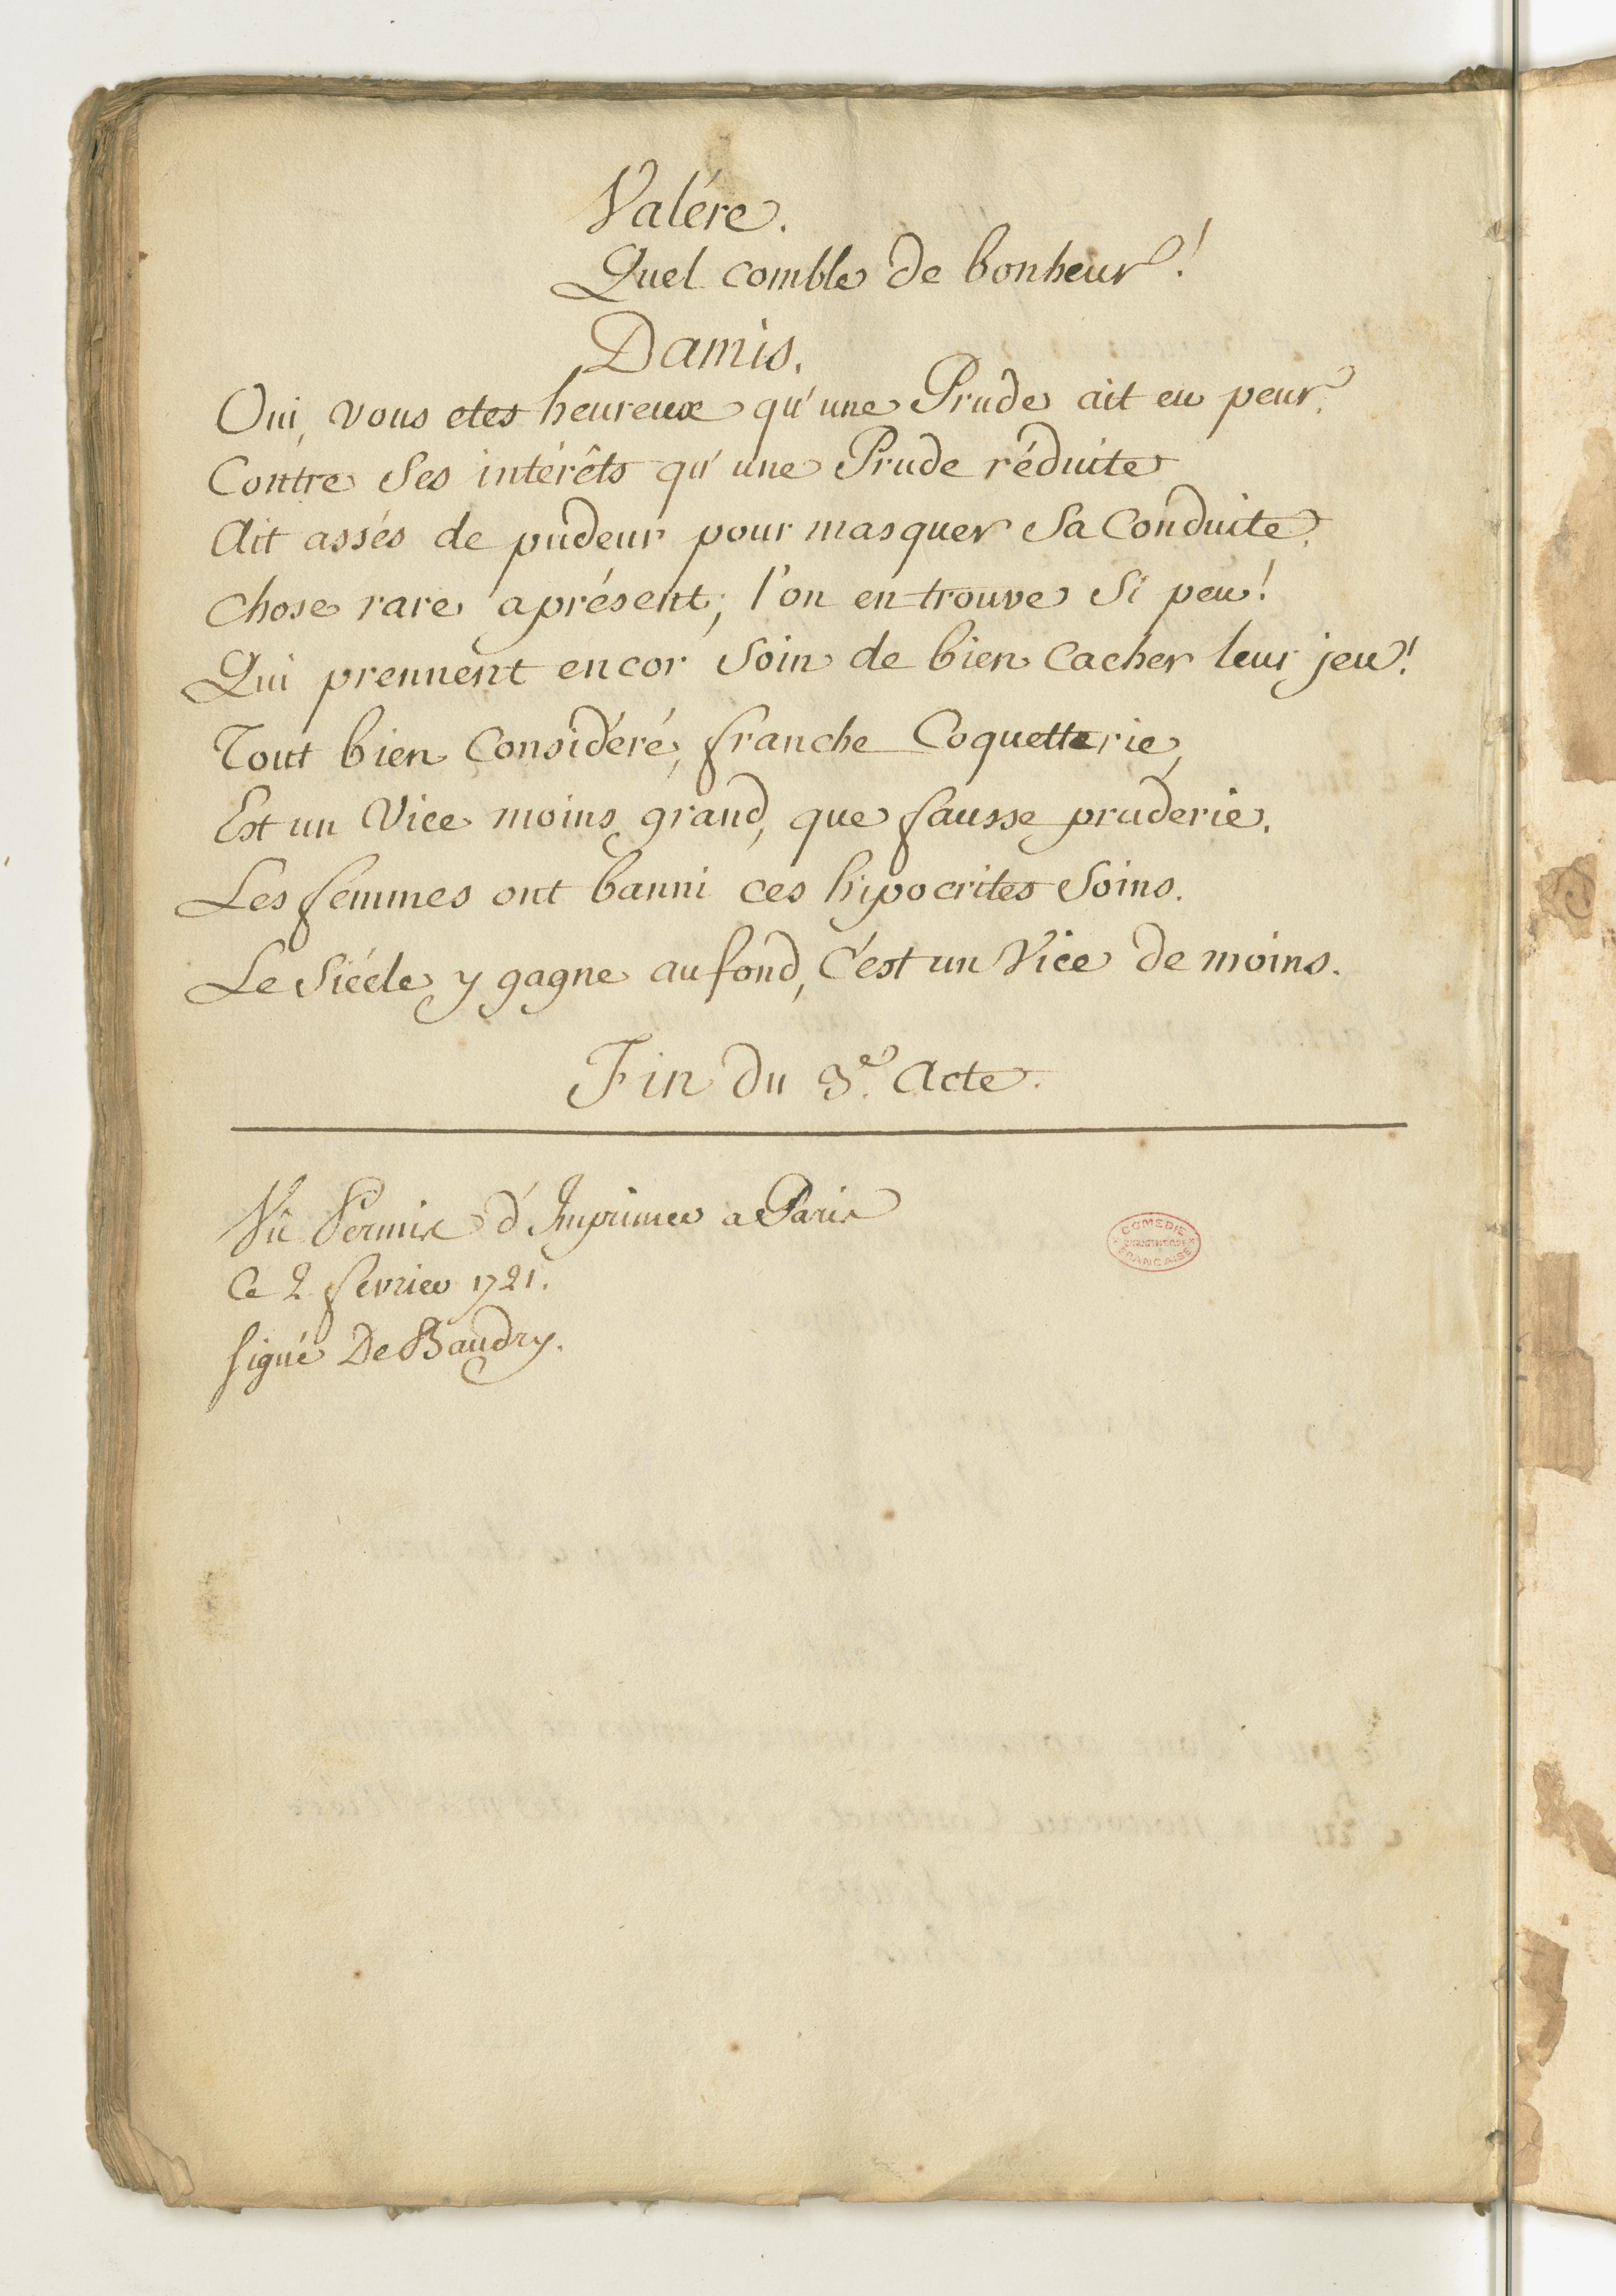 Valére.
Quel comble de bonheur!
Damis.
Oui, vous etes heureux qu'une Prude ait eu peur.
Contre Ses intérêts qu'une Prude réduite
Ait assés de pudeur pour masquer Sa Conduite.
Chose rare aprésent; l'on en trouve Si peu!
Qui prennent encor Soin de bien Cacher leur jeu!
Tout bien Considéré, franche Coquetterie,
Est un Vice moins grand, que fausse pruderie.
Les femmes ont banni ces hipocrites Soins.
Le Siécle y gagne au fond, C'est un Vice de moins.
Fin du 3.e Acte.
Vû Permis d'Imprimer a Paris
Ce 2 fevrier 1721.
signé De Baudry.
COMEDIE
FRANCAISE